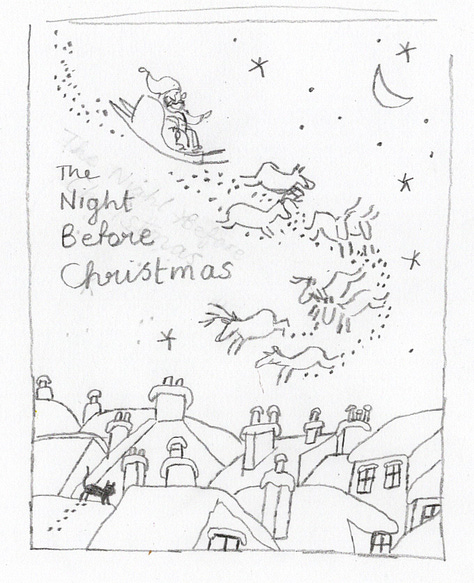 The
Night
Before
Christmas